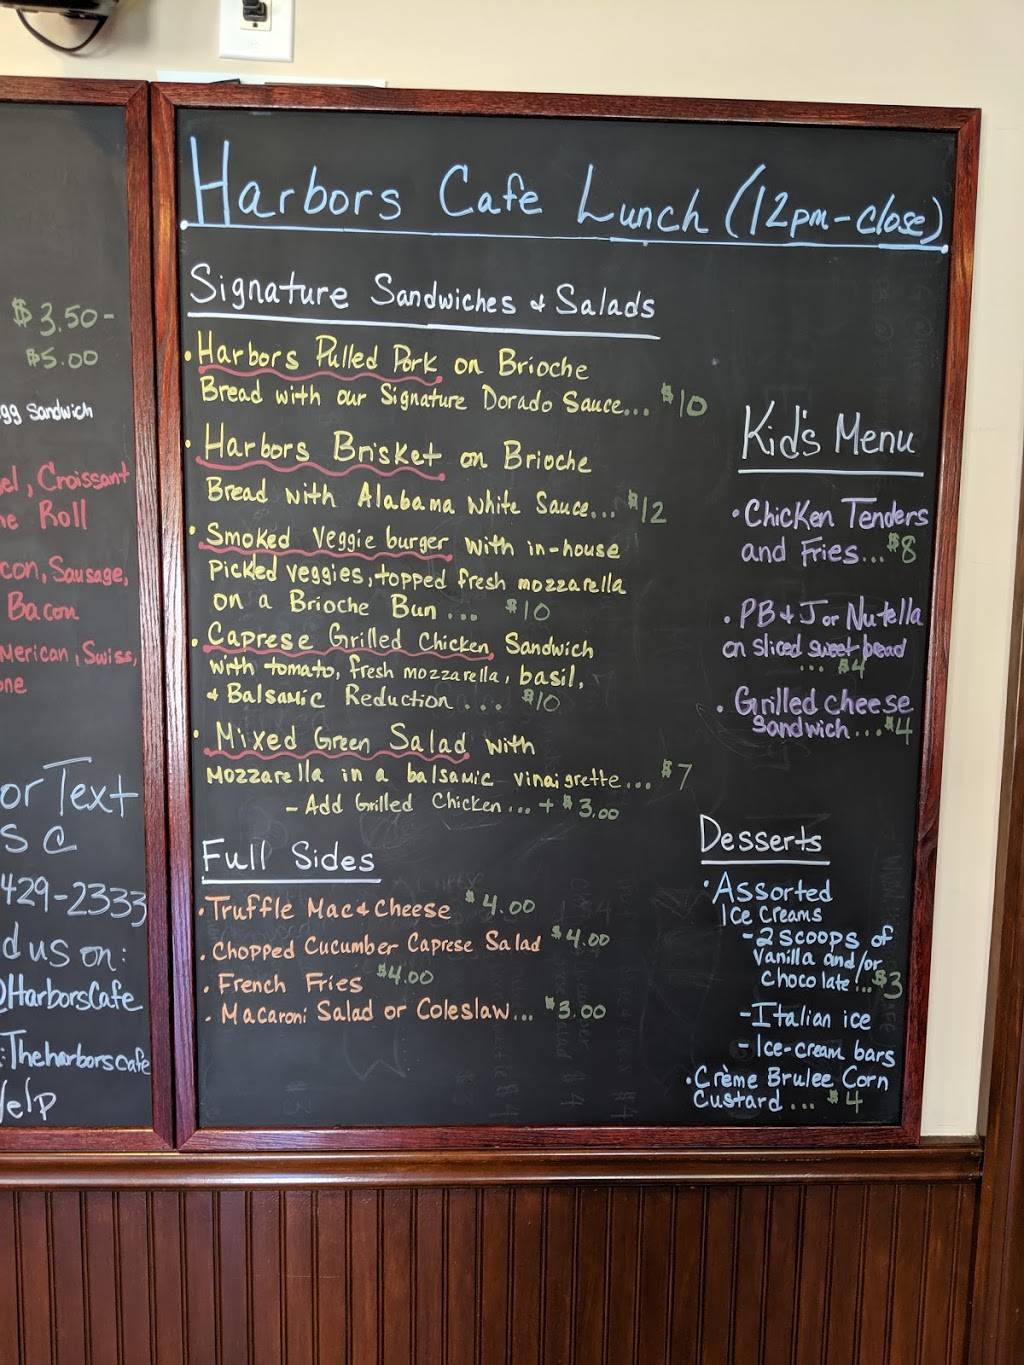 $3.50-
$5.00
gg Sandwich
el, Croissant
Roll
con, Sausage,
Bacon
merican, Swiss,
one
or Text
S C
429-2333
d us on:
@HarborsCafe
:Theharborscafe
Yelp
Harbors Cafe Lunch (12pm-close)
Signature Sandwiches & Salads
• Harbors Pulled Pork on Brioche
Bread with our Signature Dorado Sauce... $10
• Harbors Brisket on Brioche
Bread with Alabama White Sauce... $12
• Smoked Veggie burger with in-house
Picked veggies, topped fresh mozzarella
on a Brioche Bun ... $10
• Caprese Grilled Chicken Sandwich
with tomato, fresh mozzarella, basil,
& Balsamic Reduction ... $10
• Mixed Green Salad with
Mozzarella in a balsamic vinaigrette... $7
- Add Grilled Chicken... + $3.00
Full Sides
• Truffle Mac & Cheese $4.00
• Chopped Cucumber Caprese Salad $4.00
• French Fries $4.00
• Macaroni Salad or Coleslaw... $3.00
Kid's Menu
• Chicken Tenders
and Fries... $8
• PB & J or Nutella
on sliced sweet bread
... $4
• Grilled cheese
Sandwich... $4
Desserts
• Assorted
Ice Creams
- 2 scoops of
Vanilla and/or
Chocolate!... $3
- Italian ice
- Ice-cream bars
• Crème Brulee Corn
Custard ... $4